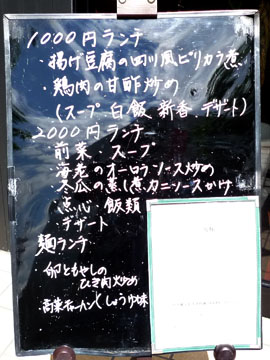 1000円ランチ
・揚げ豆腐の四川風ピリカラ煮
・鶏肉の甘酢炒め
(スープ.白飯.新香.デザート)
2000円ランチー
・前菜 スープ
・海老のオーロラソース炒め
・冬瓜の蒸し煮カニソースかけ
・点心・飯類
・デザート
麺ランチ
・卵ともやしの
ひき肉炒め
しょうゆ味